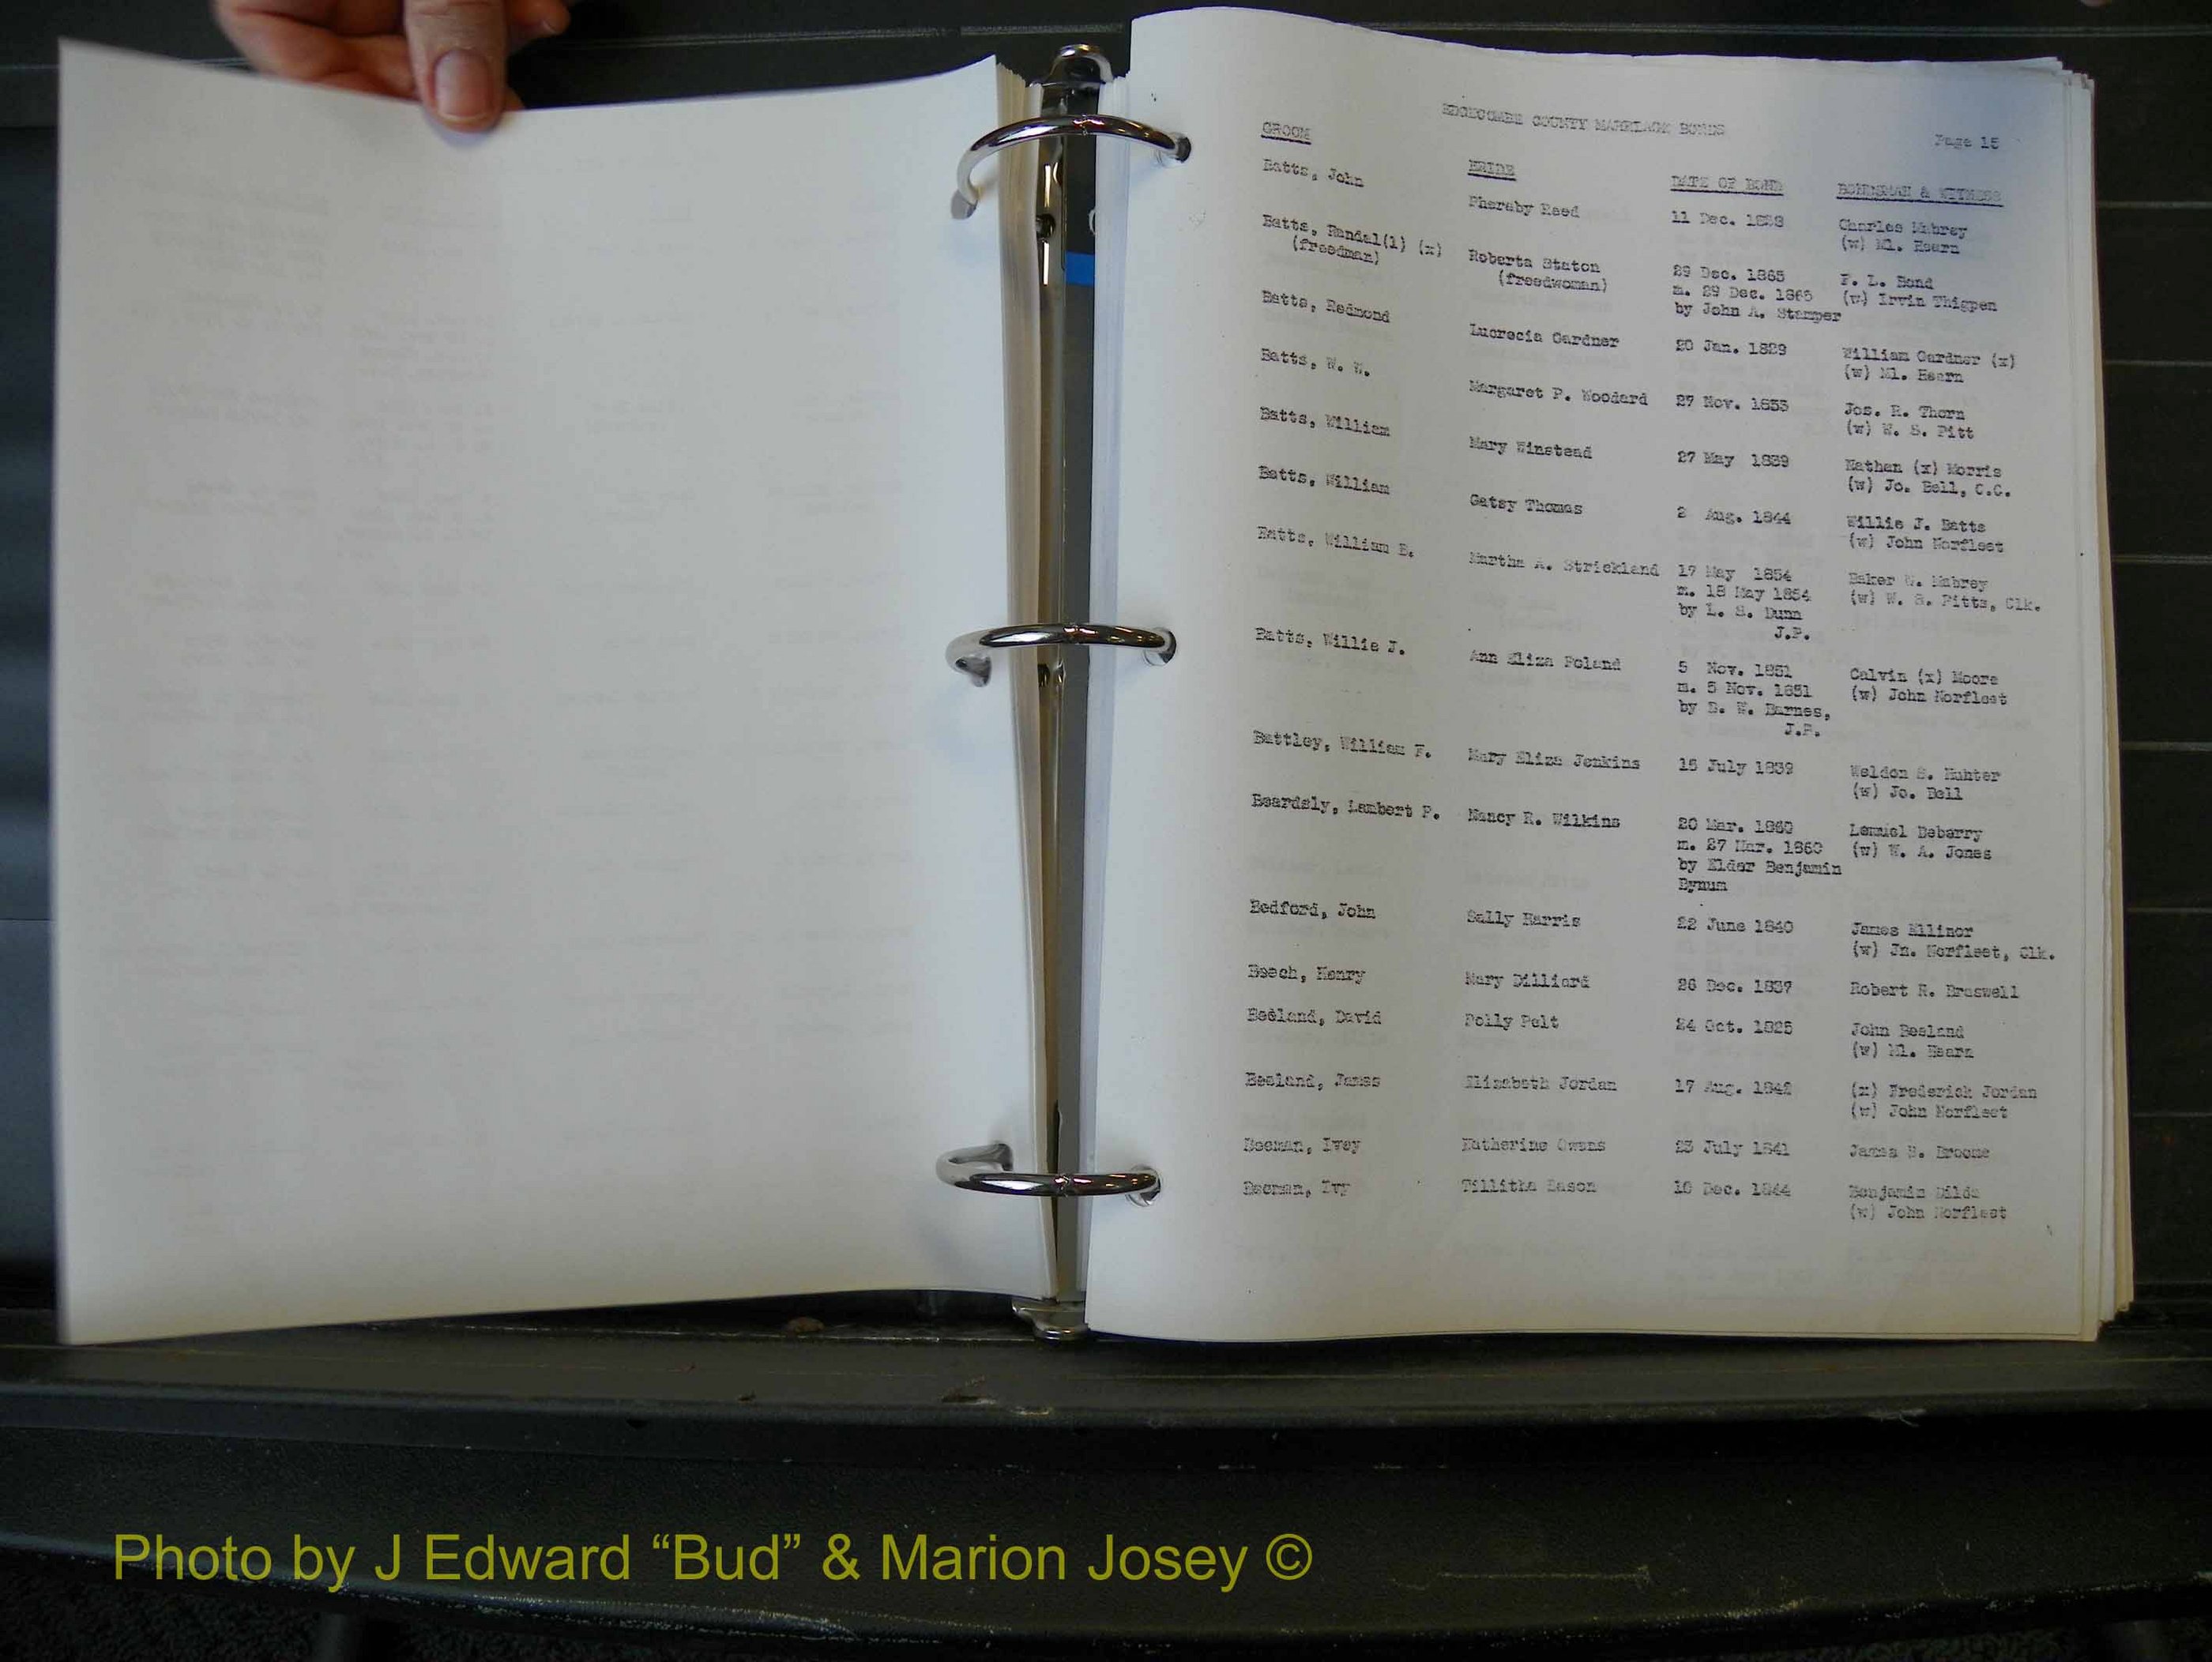 EDGECOMBE COUNTY MARRIAGE BONDS
Page 15
GROOM BRIDE DATE OF BOND BONDSMAN & WITNESS
Batts, John Pheraby Reed 11 Dec. Charles Mabrey
(w) Ml. Hearn
Batts, Randal(l) (x) Roberta Staton 29 Dec. 1865 F. L. Bond
(freedman) (freedwoman) m. 29 Dec. 1865 (w) Irvin Thigpen
by John A. Stamper
Batts, Redmond Lucrecia Gardner 20 Jan. 1829 William Gardner (x)
(w) Ml. Hearn
Batts, W. W. Margaret P. Woodard 27 Nov. 1853 Jos. R. Thorn
(w) W. S. Pitt
Batts, William Mary Winstead 27 May 1839 Nathan (x) Morris
(w) Jo. Bell, C.C.
Batts, William Gatsy Thomas 2 Aug. 1844 Willie J. Batts
(w) John Norfleet
Batts, William B. Martha A. Strickland 17 May 1854 Baker Mabrey
m. 18 May 1854 (w) W. S. Pitts, Clk.
by L. S. Dunn
J.P.
Batts, Willie J. Ann Eliza Poland 5 Nov. 1851 Calvin (x) Moore
m. 5 Nov. 1851 (w) John Norfleet
by W. Barnes,
J.P.
Battley, William F. Mary Eliza Jenkins 15 July 1839 Weldon S. Hunter
(w) Jo. Bell
Beardsly, Lambert P. Nancy R. Wilkins 20 Mar. 1860 Lemuel Deberry
m. 27 Mar. 1860 (w) W. A. Jones
by Elder Benjamin
Bynum
Bedford, John Sally Harris 22 June 1840 James Ellinor
(w) Jn. Norfleet, Clk.
Beech, Henry Mary Dilliard 26 Dec. 1837 Robert R. Braswell
Beeland, David Polly Pelt 24 Oct. 1825 John Beeland
(w) Ml. Hearn
Beeland, James Elizabeth Jordan 17 Aug. 1842 (x) Frederick Jordan
(w) John Norfleet
Beeman, Ivey Katherine Owens 23 July 1841 James Broome
Beeman, Ivy Tillitha Eason Dec. 1844 Benjamin Dilda
(w) John Norfleet
Photo by J Edward “Bud” & Marion Josey ©